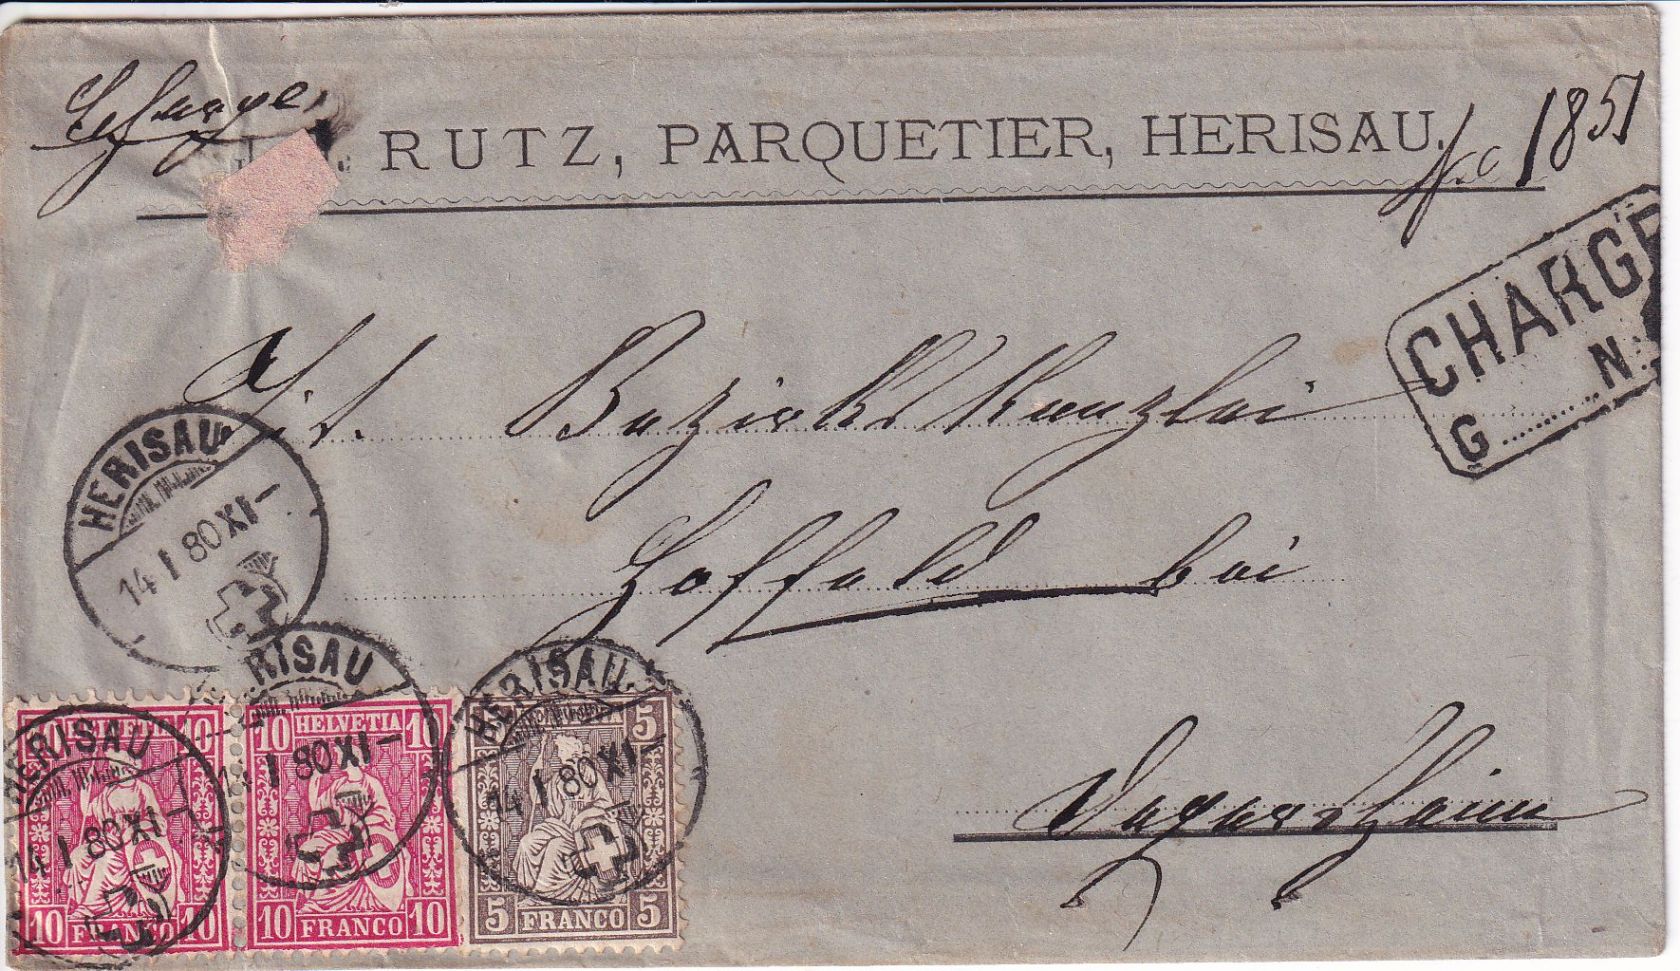 RUTZ, PARQUETIER, HERISAU.
No 1851
CHARGE
G..........N
Bezirkskanzlei
Hoffeld bei
Degersheim
HERISAU
14 I 80 XI—
HERISAU
14 I 80 XI—
HERISAU
14 I 80 XI—
HERISAU
14 I 80 XI—
10 HELVETIA 10
10 FRANCO 10
10 HELVETIA 10
10 FRANCO 10
5
5 FRANCO 5